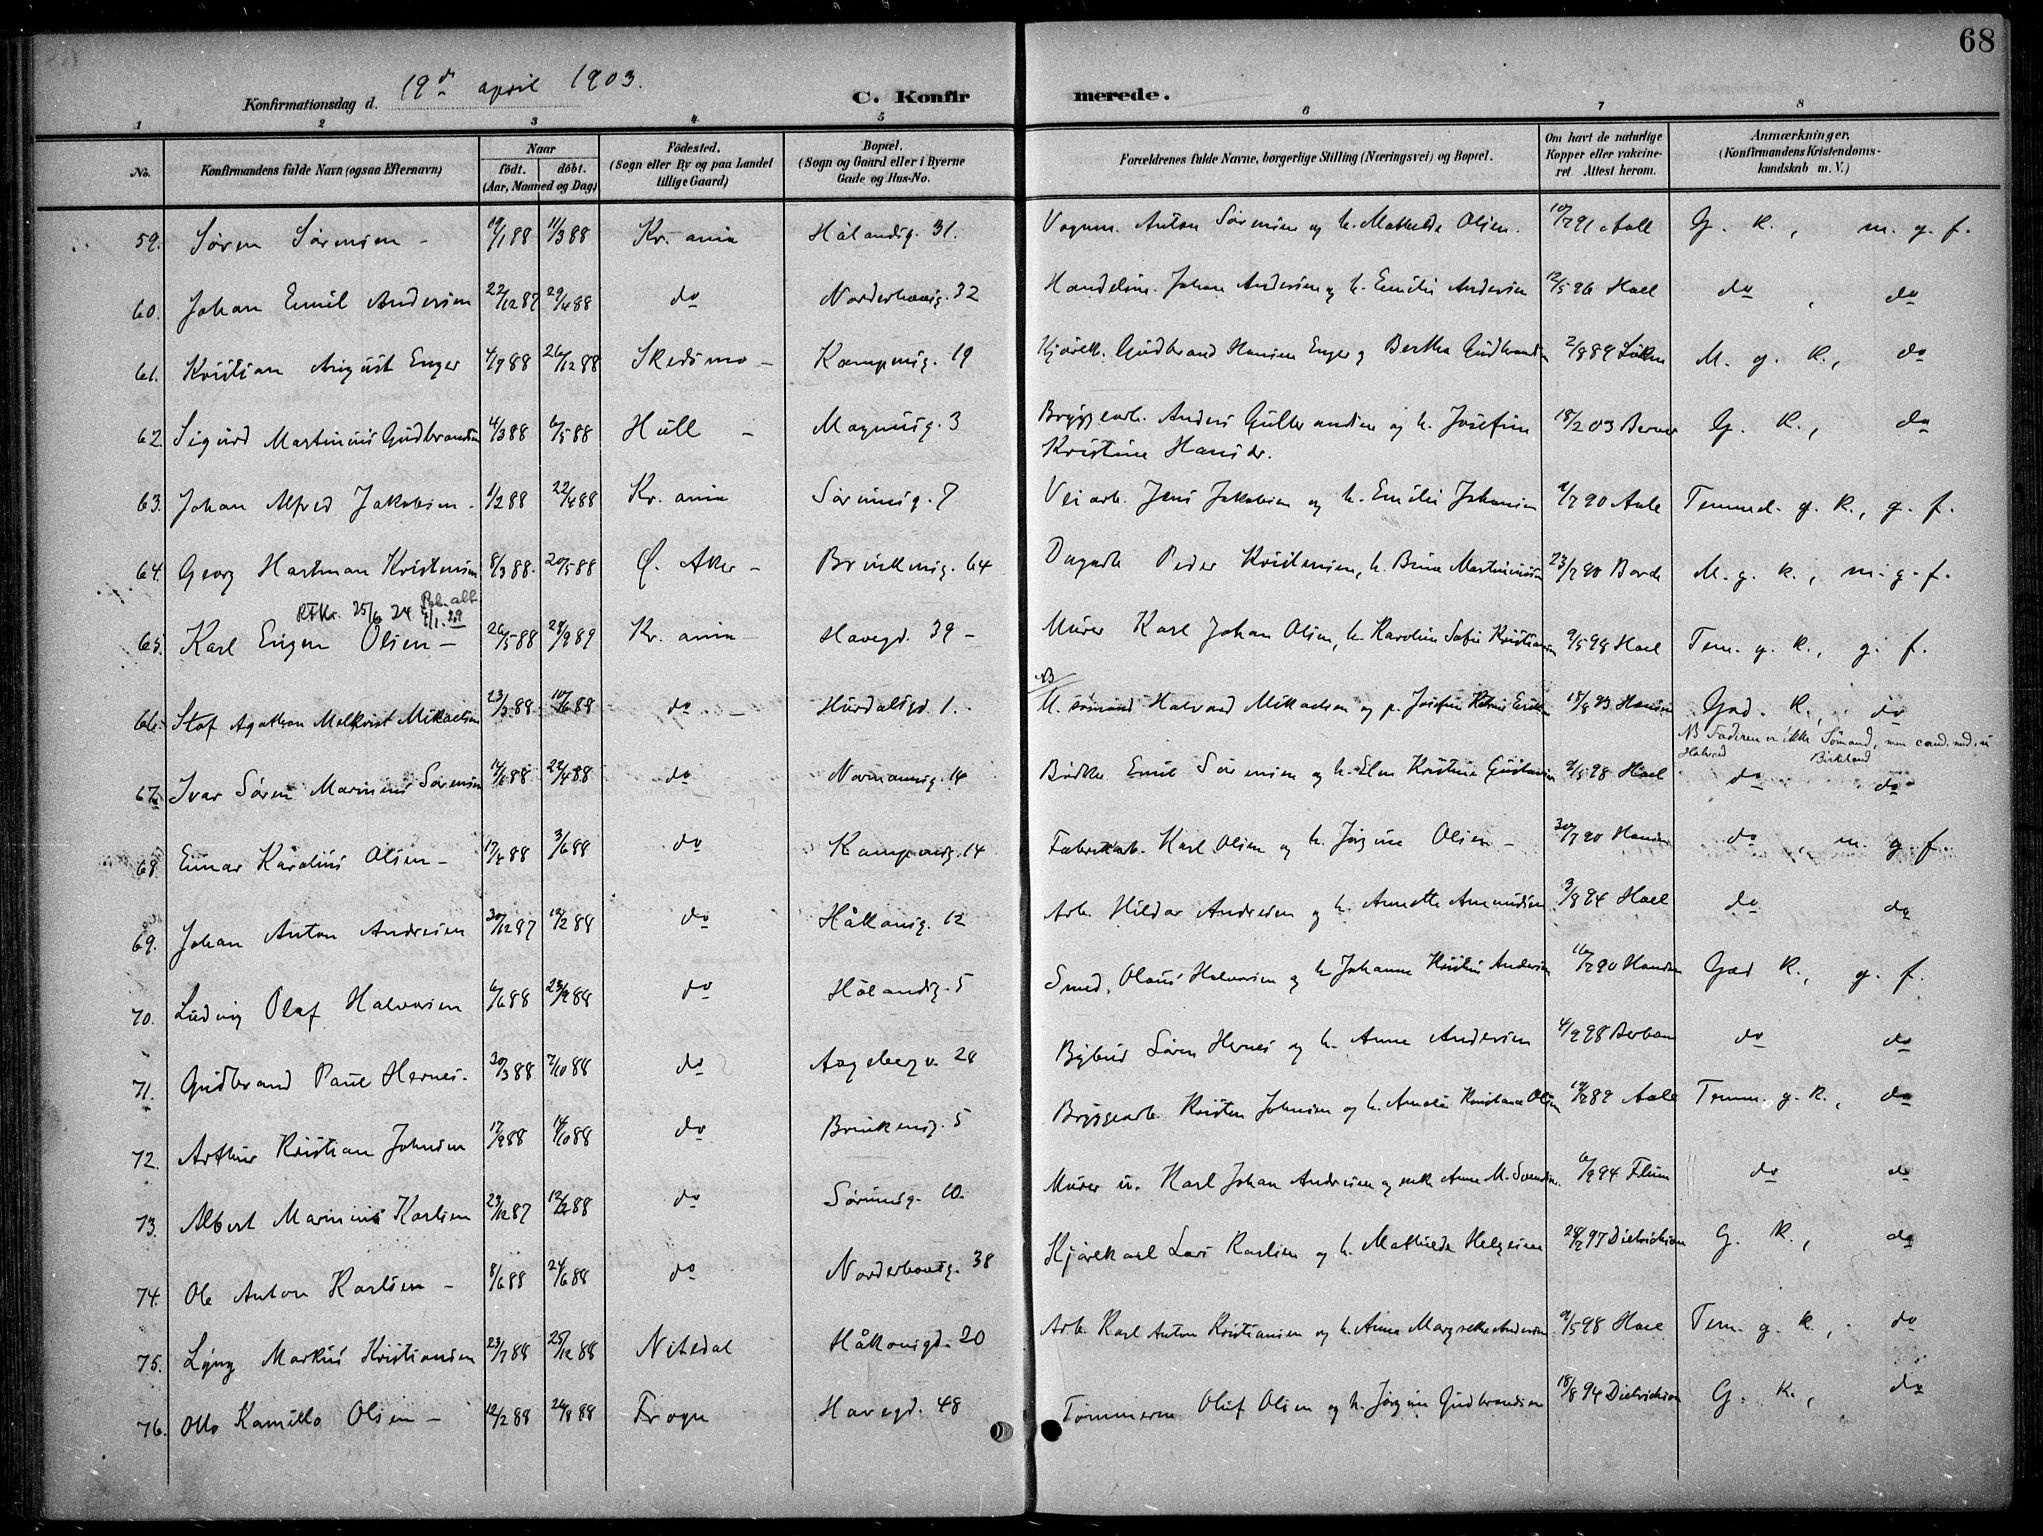 68
Konfirmationsdag d. 19de april 1903.
C. Konfirmerede.
1 2 3 4 5 6 7 8
No. Konfirmandens fulde Navn (ogsaa Efternavn) Naar født. døbt. (Aar, Maaned og Dag) Fødested. (Sogn eller By og paa Landet tillige Gaard) Bopæl. (Sogn og Gaard eller i Byerne Gade og Hus-No. Forældrenes fulde Navne, borgerlige Stilling (Næringsvei) og Bopæl. Om havt de naturlige Kopper eller vakcineret Attest herom. Anmærkninger. (Konfirmandens Kristendomskundskab m. V.)
59. Søren Sørensen – 19/1 88 11/3 88 Kr. ania Hølandsg. 31. Vognm. Anton Sørensen og h. Mathilde Olsen. 10/7 91 Aall G. K., m. g. f.
60. Johan Emil Andersen 22/12 87 29/4 88 do Norderhovsg. 32 Handelsm. Johan Andersen og h. Emilie Andersen 12/5 96 Hoel do, do
61. Kristian August Enger 4/9 88 26/12 88 Skedsmo – Kampensg. 19 Kjørek. Gudbrand Hansen Enger og Bertha Gudbrandsen 2/8 89 Løken M. g. K., do
62. Sigurd Martinius Gudbrandsen 4/3 88 6/5 88 Hull – Magnusg. 3 Bryggearb. Anders Gulbrandsen og h. Josefine Kristine Hansdr. 18/2 03 Berner G. K., do
63. Johan Alfred Jakobsen – 1/2 88 22/4 88 Kr. ania Sørumsg. 7 Veiarb. Jens Jakobsen og h. Emilie Johansen 90 Aall Temmel. g. K., g. f.
64. Georg Hartman Kristensen 8/3 88 20/5 88 Ø. Aker – Brinkensg. 64 Dagarb Peder Kristensen, h. 23/7 90 Borde M. g. K., m. g. f.
RTKr. 25/6 24
65. Karl Eugen Olsen – 26/5 88 89 Kr. ania – Havegd. 39 – Murer Karl Johan Olsen, h. Karoline Sofie Kristiansen 9/5 98 Hoel Tem. g. K., g. f.
66. Olaf Agathon Melkvist Mikaelsen 23/3 88 10/6 88 do – Hurdalsgd. 1. NB U. sømand Halvard Mikaelsen og p. Josefine 18/8 93 Hansen God. K., do
NB Faderen er ikke Sømand, men cand. med. Halvard Birkeland
67. Ivar Søren Marinius Sørensen 88 22/4 88 do Normannsg. 14 Bødker Emil Sørensen og h. Kristine Gustavsen 9/5 98 Hoel do do
68. Einar Karolius Olsen – 17/4 88 3/6 88 do Kampensg. 14 Fabrikarb. Karl Olsen og h. Jørgine Olsen – 30/7 90 do, m. g. f.
69. Johan Anton Andresen 30/12 87 12/2 88 do Håkonsg. 12 Arb. Hildar Andresen og h. Annette Amundsen 3/8 94 Hoel do do
70. Ludvig Olaf Halvorsen 6/6 88 23/9 88 do Hølandsg. 5 Smed. Olaus Halvorsen og h. Johanne Andersen 16/7 90 God K., g. f.
71. Gudbrand Paul Hernes. 30/3 88 7/10 88 do Aagebergv. 28 Bybud Søren Hernes og h. Anne Andersen 4/2 98 do do
72. Arthur Kristian Johnsen 17/9 88 14/10 88 do Brinkensg. 5 Bryggearb. Kristen Johnsen og h. Amalie Olsen 89 Aall Temm. g. K., do
73. Albert Marinius Karlsen 29/12 87 12/2 88 do Sørumsg. 10. Murer u. Karl Johan Andresen og enke Anne M. 6/9 94 do do
74. Ole Anton Karlsen – 8/6 88 24/6 88 do Norderhovsg. 38 Kjørekarl Lars Karlsen og h. Mathilde Helgesen 97 Dietrichson G. K., do
75. Markus Kristiansen 23/7 88 25/12 88 Nitedal Håkonsgd. 20 Arb. Karl Anton Kristiansen og h. Anne Margrethe Andersen 9/5 98 Hoel Tem. g. K., do
76. Otto Kamillo Olsen – 12/2 88 26/8 88 Frogn Havegd. 48 Tømmerm Oluf Olsen og h. Jørgine Gudbrandsen 18/8 94 Dietrichson G. K., do